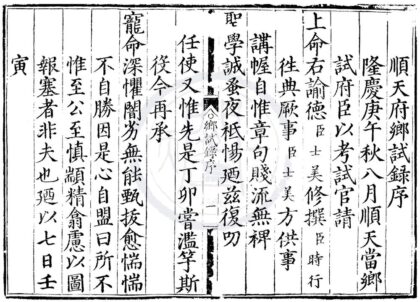 順天府鄉試錄序
隆慶庚午秋八月順天當鄉
試府臣以考試官請
上命右諭德臣士美修撰臣時行
徃典厥事臣士美方供事
講幄自惟章句賤流無裨
聖學誠蚤夜祗惕廼茲復叨
鄉試錄序
一
任使又惟先是丁卯嘗濫竽斯
役今再承
寵命深懼闇劣無能甄拔愈惴惴
不自勝因是心自盟曰所不
惟至公至慎顓精畣慮以圖
報塞者非夫也廼以七日壬
寅